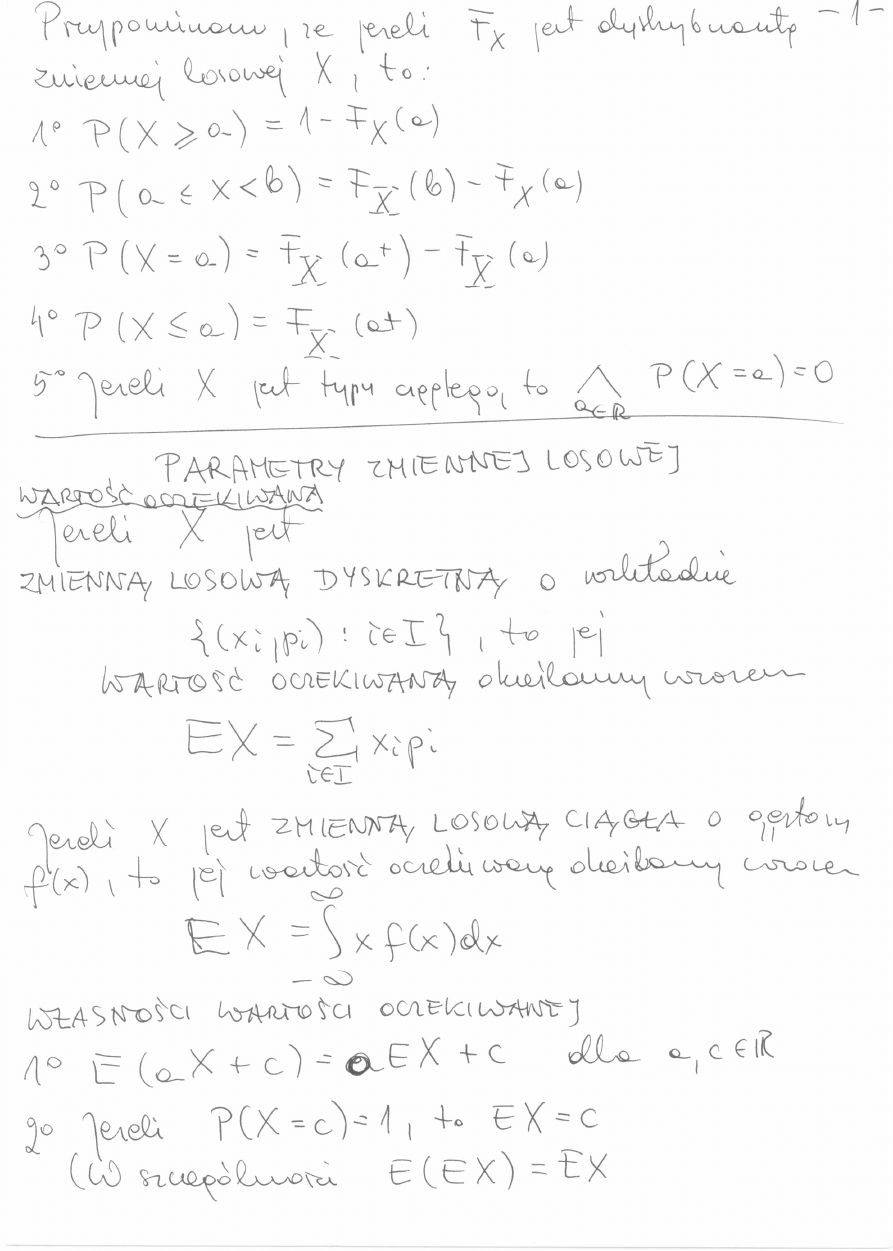 Przypominam, że jeżeli F_X jest dystrybuantą -1-
zmiennej losowej X, to:
1° P(X ≥ a) = 1 - F_X(a)
2° P(a ≤ X < b) = F_X(b) - F_X(a)
3° P(X = a) = F_X(a⁺) - F_X(a)
4° P(X ≤ a) = F_X(a⁺)
5° Jeżeli X jest typu ciągłego, to ⋀_{a∈ℝ} P(X = a) = 0
PARAMETRY ZMIENNEJ LOSOWEJ
WARTOŚĆ OCZEKIWANA
Jeżeli X jest
ZMIENNĄ LOSOWĄ DYSKRETNĄ o rozkładzie
{(xi, pi) : i∈I}, to jej
WARTOŚĆ OCZEKIWANĄ określamy wzorem
EX = Σ_{i∈I} xi pi
Jeżeli X jest ZMIENNĄ LOSOWĄ CIĄGŁĄ o gęstości
f(x), to jej wartość oczekiwaną określamy wzorem
EX = ∫_{-∞}^{∞} x f(x) dx
WŁASNOŚCI WARTOŚCI OCZEKIWANEJ
1° E(aX + c) = aEX + c dla a, c ∈ ℝ
2° Jeżeli P(X = c) = 1, to EX = c
(W szczególności E(EX) = EX